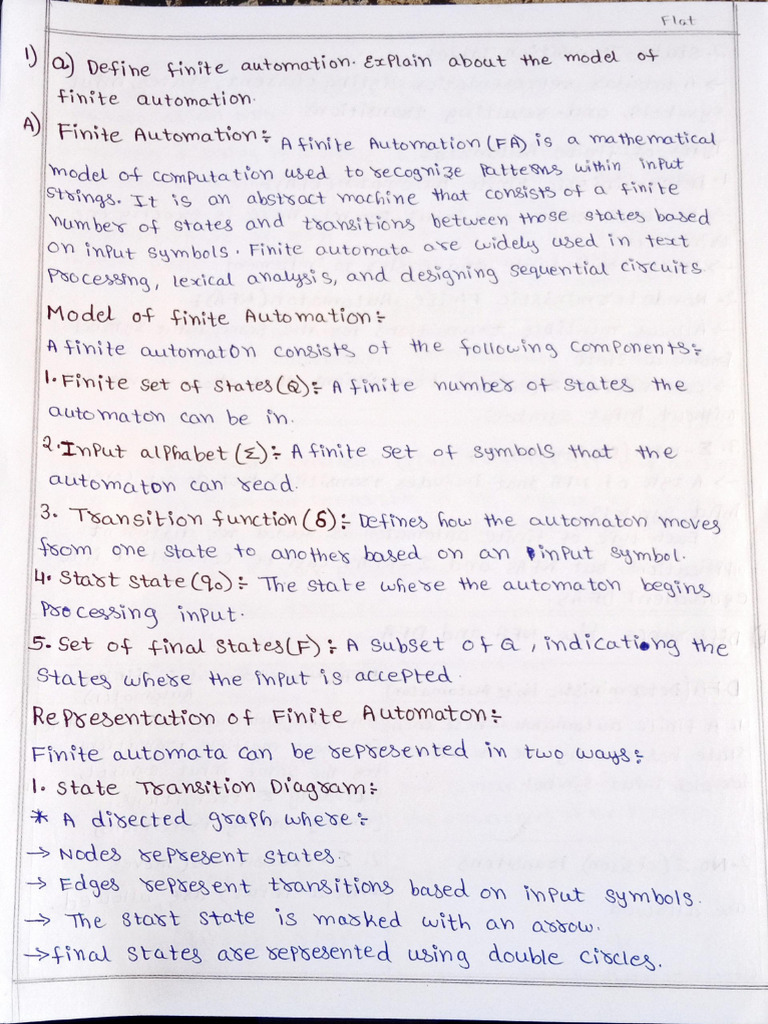 Flat
1) a) Define finite automation. Explain about the model of
finite automation.
A) Finite Automation:- A finite Automation (FA) is a mathematical
model of computation used to recognize patterns within input
strings. It is an abstract machine that consists of a finite
number of states and transitions between those states based
on input symbols. Finite automata are widely used in text
processing, lexical analysis, and designing sequential circuits.
Model of finite Automation:-
A finite automaton consists of the following components:-
1. Finite set of states (Q):- A finite number of states the
automaton can be in.
2. Input alphabet (Σ):- A finite set of symbols that the
automaton can read.
3. Transition function (δ):- Defines how the automaton moves
from one state to another based on an input symbol.
4. Start state (q0):- The state where the automaton begins
processing input.
5. Set of final states (F):- A subset of Q, indicating the
states where the input is accepted.
Representation of Finite Automaton:-
Finite automata can be represented in two ways:-
1. State Transition Diagram:-
* A directed graph where:-
→ Nodes represent states.
→ Edges represent transitions based on input symbols.
→ The start state is marked with an arrow.
→ final states are represented using double circles.